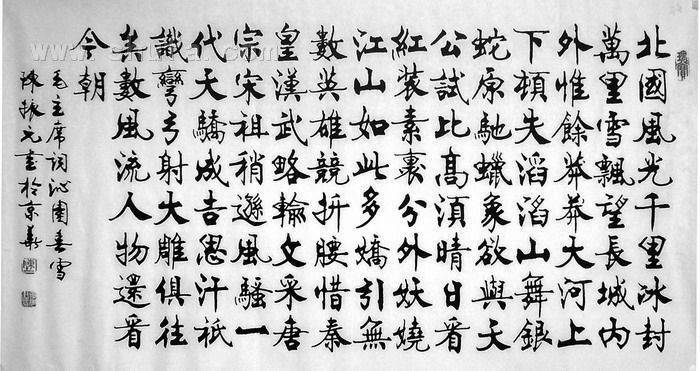 北國風光千里冰封
萬里雪飄望長城内
外惟餘莽莽大河上
下頓失滔滔山舞銀
蛇原馳蠟象欲與天
公試比高須晴日看
紅裝素裹分外妖嬈
江山如此多嬌引無
數英雄競折腰惜秦
皇漢武略輸文采唐
宗宋祖稍遜風騷一
代天驕成吉思汗祇
識彎弓射大雕俱往
矣數風流人物還看
今朝
毛主席词沁園春雪
陳振元書於京華